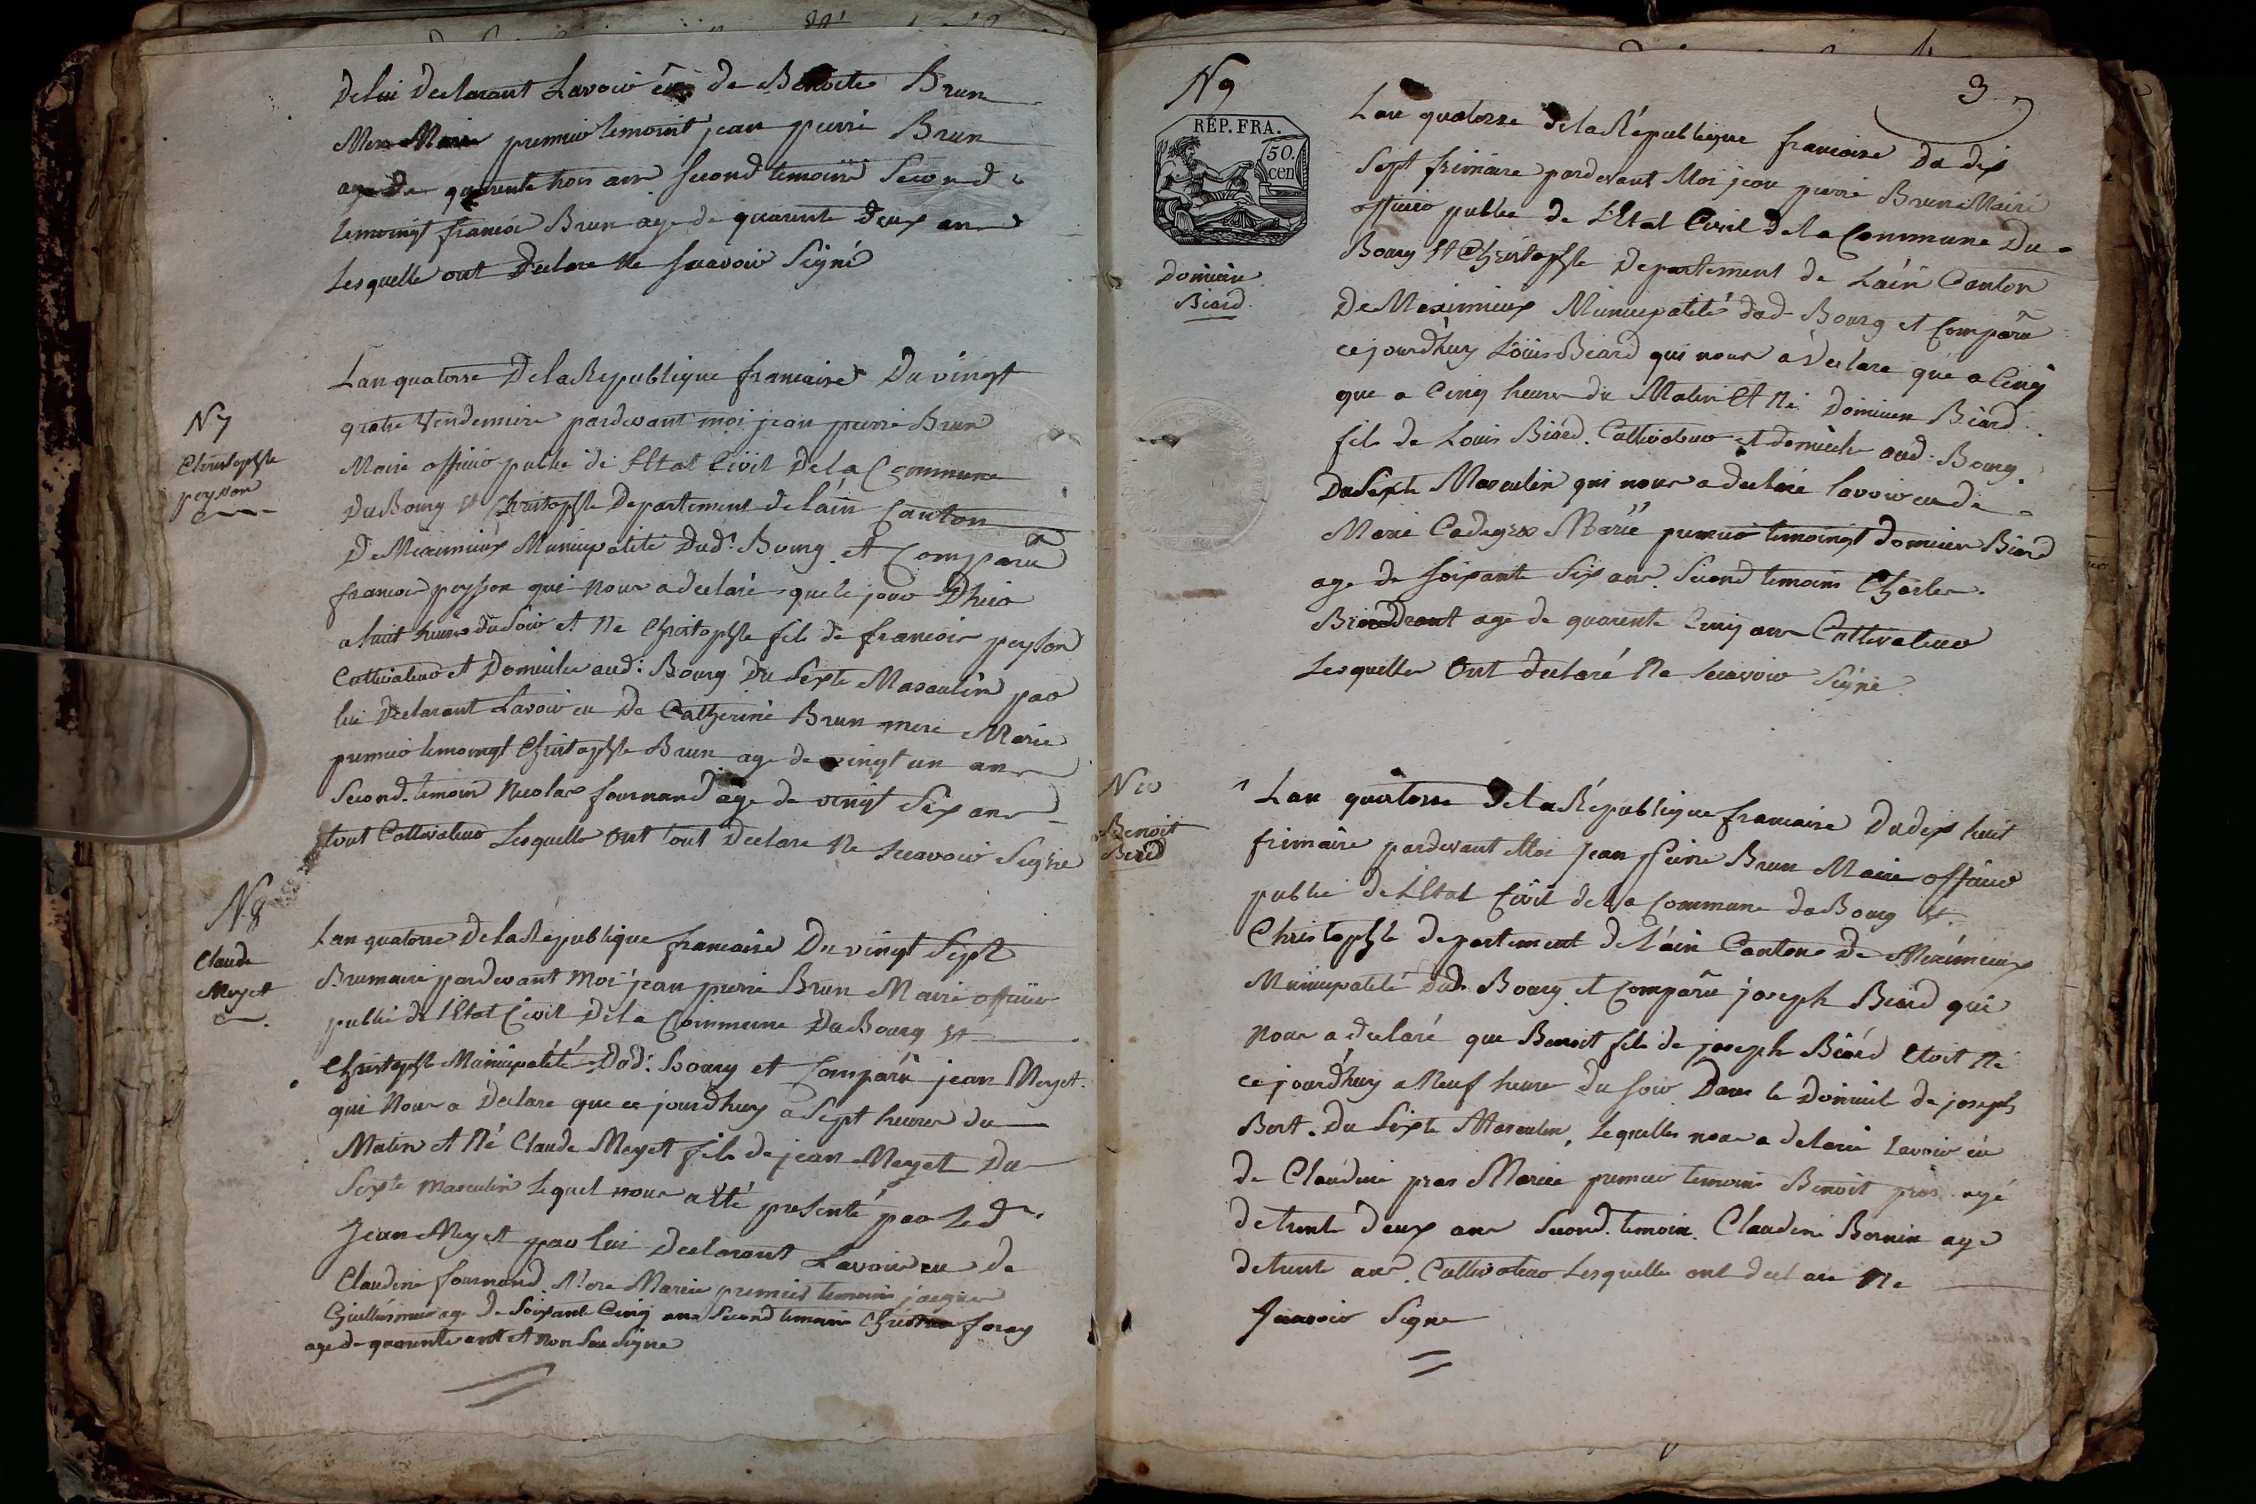 De lui Declarant Lavoir eu de Benoite Brun
Mere Marie premier temoint jean pierre Brun
age De quarente trois ans second temoins Second
temoingt francois Brun age de quarente Deux ans
Lesquelle ont Declare Ne scavoir Signé
N 7
Christophle
peysson
Lan quatorse De la Republique francaise Du vingt
quatre Vendemiere pardevant moi jean pierre Brun
Maire officier public de L'Etat Civil De la Commune
Du Bourg St Christophle Departement de lain Canton
De Meximieux Municipalité Dud. Bourg et Comparu
francois peysson qui Nous a declaré que le jour Dhier
a huit heures du Soir et Ne Christophle fils de francois peysson
Cultivateur et Domicilie aud: Bourg Du Sexte Masculin par
lui Declarant Lavoir eu De Catherine Brun mere Marie
premier temoingt Christophle Brun age de vingt un ans
Second temoin Nicolas fournand age de vingt Six ans
tout Cultivateur Lesquelle ont tout Declare Ne scavoir Signe
N 8
Claude
Meyet
Lan quatorse De la Republique francaise Du vingt Sept
Brumaire pardevant Moi jean pierre Brun Maire officier
public de L'Etat Civil De la Commune Du Bourg St
Christophle Municipalité Dud: Bourg et Comparu jean Meyet
qui Nous a Declare que ce jourdhuy a Sept heures du
Matin et Né Claude Meyet fils de jean Meyet Du
Sexte masculin Lequel nous a été presenté par Led.
Jean Meyet par lui Declarant Lavoir eu de
Claudine fournand Mere Mariee premier temoin
age De Soixante Cinq ans Second temoin foray
age de quarente ans et Non Seu Signe
3
N 9
RÉP. FRA.
50.
cen
Domicien
Biard
Lan quatorse De la République francaise Du dix
Sept frimaire pardevant Moi jean pierre Brun Maire
officier public de L'Etat Civil de la Commune Du
Bourg St Christophle Departement de Lain Canton
De Meximieux Municipalité dud Bourg et Comparu
ce jourdhuy Loüis Biard qui nous a Declare qué a Cinq
que a Cinq heures du Matin Et Né Domicien Biard
fils de Louis Biard Cultivateur et domicilie aud. Bourg
Du Sexte Masculin qui nous a declaré lavoir eu de
Marie Mariée premier temoingt domicien Biard
age de soixante Six ans Second temoins Charles
age de quarente Cinq ans Cultivateur
Lesquelles Ont declaré Ne scavoir Signé
N 10
Benoit
Biard
Lan quatorse De la République francaise Du dix huit
frimaire pardevant Moi Jean Pierre Brun Maire officier
public de L'Etat Civil de la Commune du Bourg St.
Christophle departement de L'ain Canton De Meximieux
Municipalité Dud. Bourg et Comparu joseph Biard qui
Nous a declaré que Benoit fils de joseph Biard Etoit Né
ce jourdhuy a Neuf heures du soir Dans le Domicile de joseph
Bort. Du Sexte Masculin, Lequelles nous a delaré Lavoir eu
de Claudine pras Mariee premier temoin Benoit pras agé
de trente deux ans Second. temoin Claudine Bernin age
de trente ans. Cultivateur Lesquelle ont declare Ne
scavoir Signe